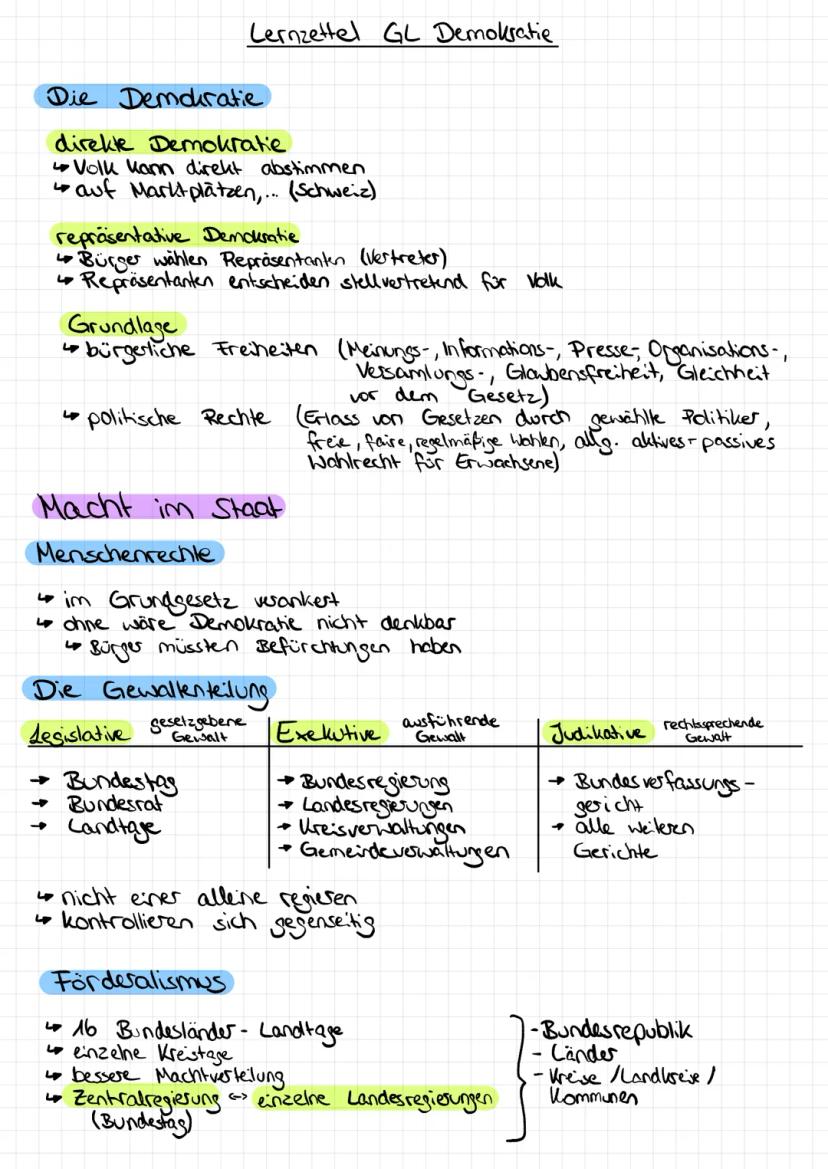 Lernzettel GL Demokratie
Die Demokratie
direkte Demokratie
↳ Volk kann direkt abstimmen
↳ auf Marktplätzen,... (Schweiz)
repräsentative Demokratie
↳ Bürger wählen Repräsentanten (Vertreter)
↳ Repräsentanten entscheiden stellvertretend für Volk
Grundlage
↳ bürgerliche Freiheiten (Meinungs-, Informations-, Presse-, Organisations-,
Versamlungs-, Glaubensfreiheit, Gleichheit
vor dem Gesetz)
↳ politische Rechte (Erlass von Gesetzen durch gewählte Politiker,
freie, faire, regelmäßige Wahlen, allg. aktives + passives
Wahlrecht für Erwachsene)
Macht im Staat
Menschenrechte
↳ im Grundgesetz verankert
↳ ohne wäre Demokratie nicht denkbar
↳ Bürger müssten Befürchtungen haben
Die Gewaltenteilung
Legislative gesetzgebene Gewalt | Exekutive ausführende Gewalt | Judikative rechtssprechende Gewalt
→ Bundestag
→ Bundesrat
→ Landtage
→ Bundesregierung
→ Landesregierungen
→ Kreisverwaltungen
→ Gemeindeverwaltungen
→ Bundesverfassungs-
gericht
→ alle weiteren
Gerichte
↳ nicht einer alleine regieren
↳ kontrollieren sich gegenseitig
Förderalismus
↳ 16 Bundesländer - Landtage
↳ einzelne Kreistage
↳ bessere Machtverteilung
↳ Zentralregierung ↔ einzelne Landesregierungen
(Bundestag)
- Bundesrepublik
- Länder
- Kreise / Landkreise /
Kommunen